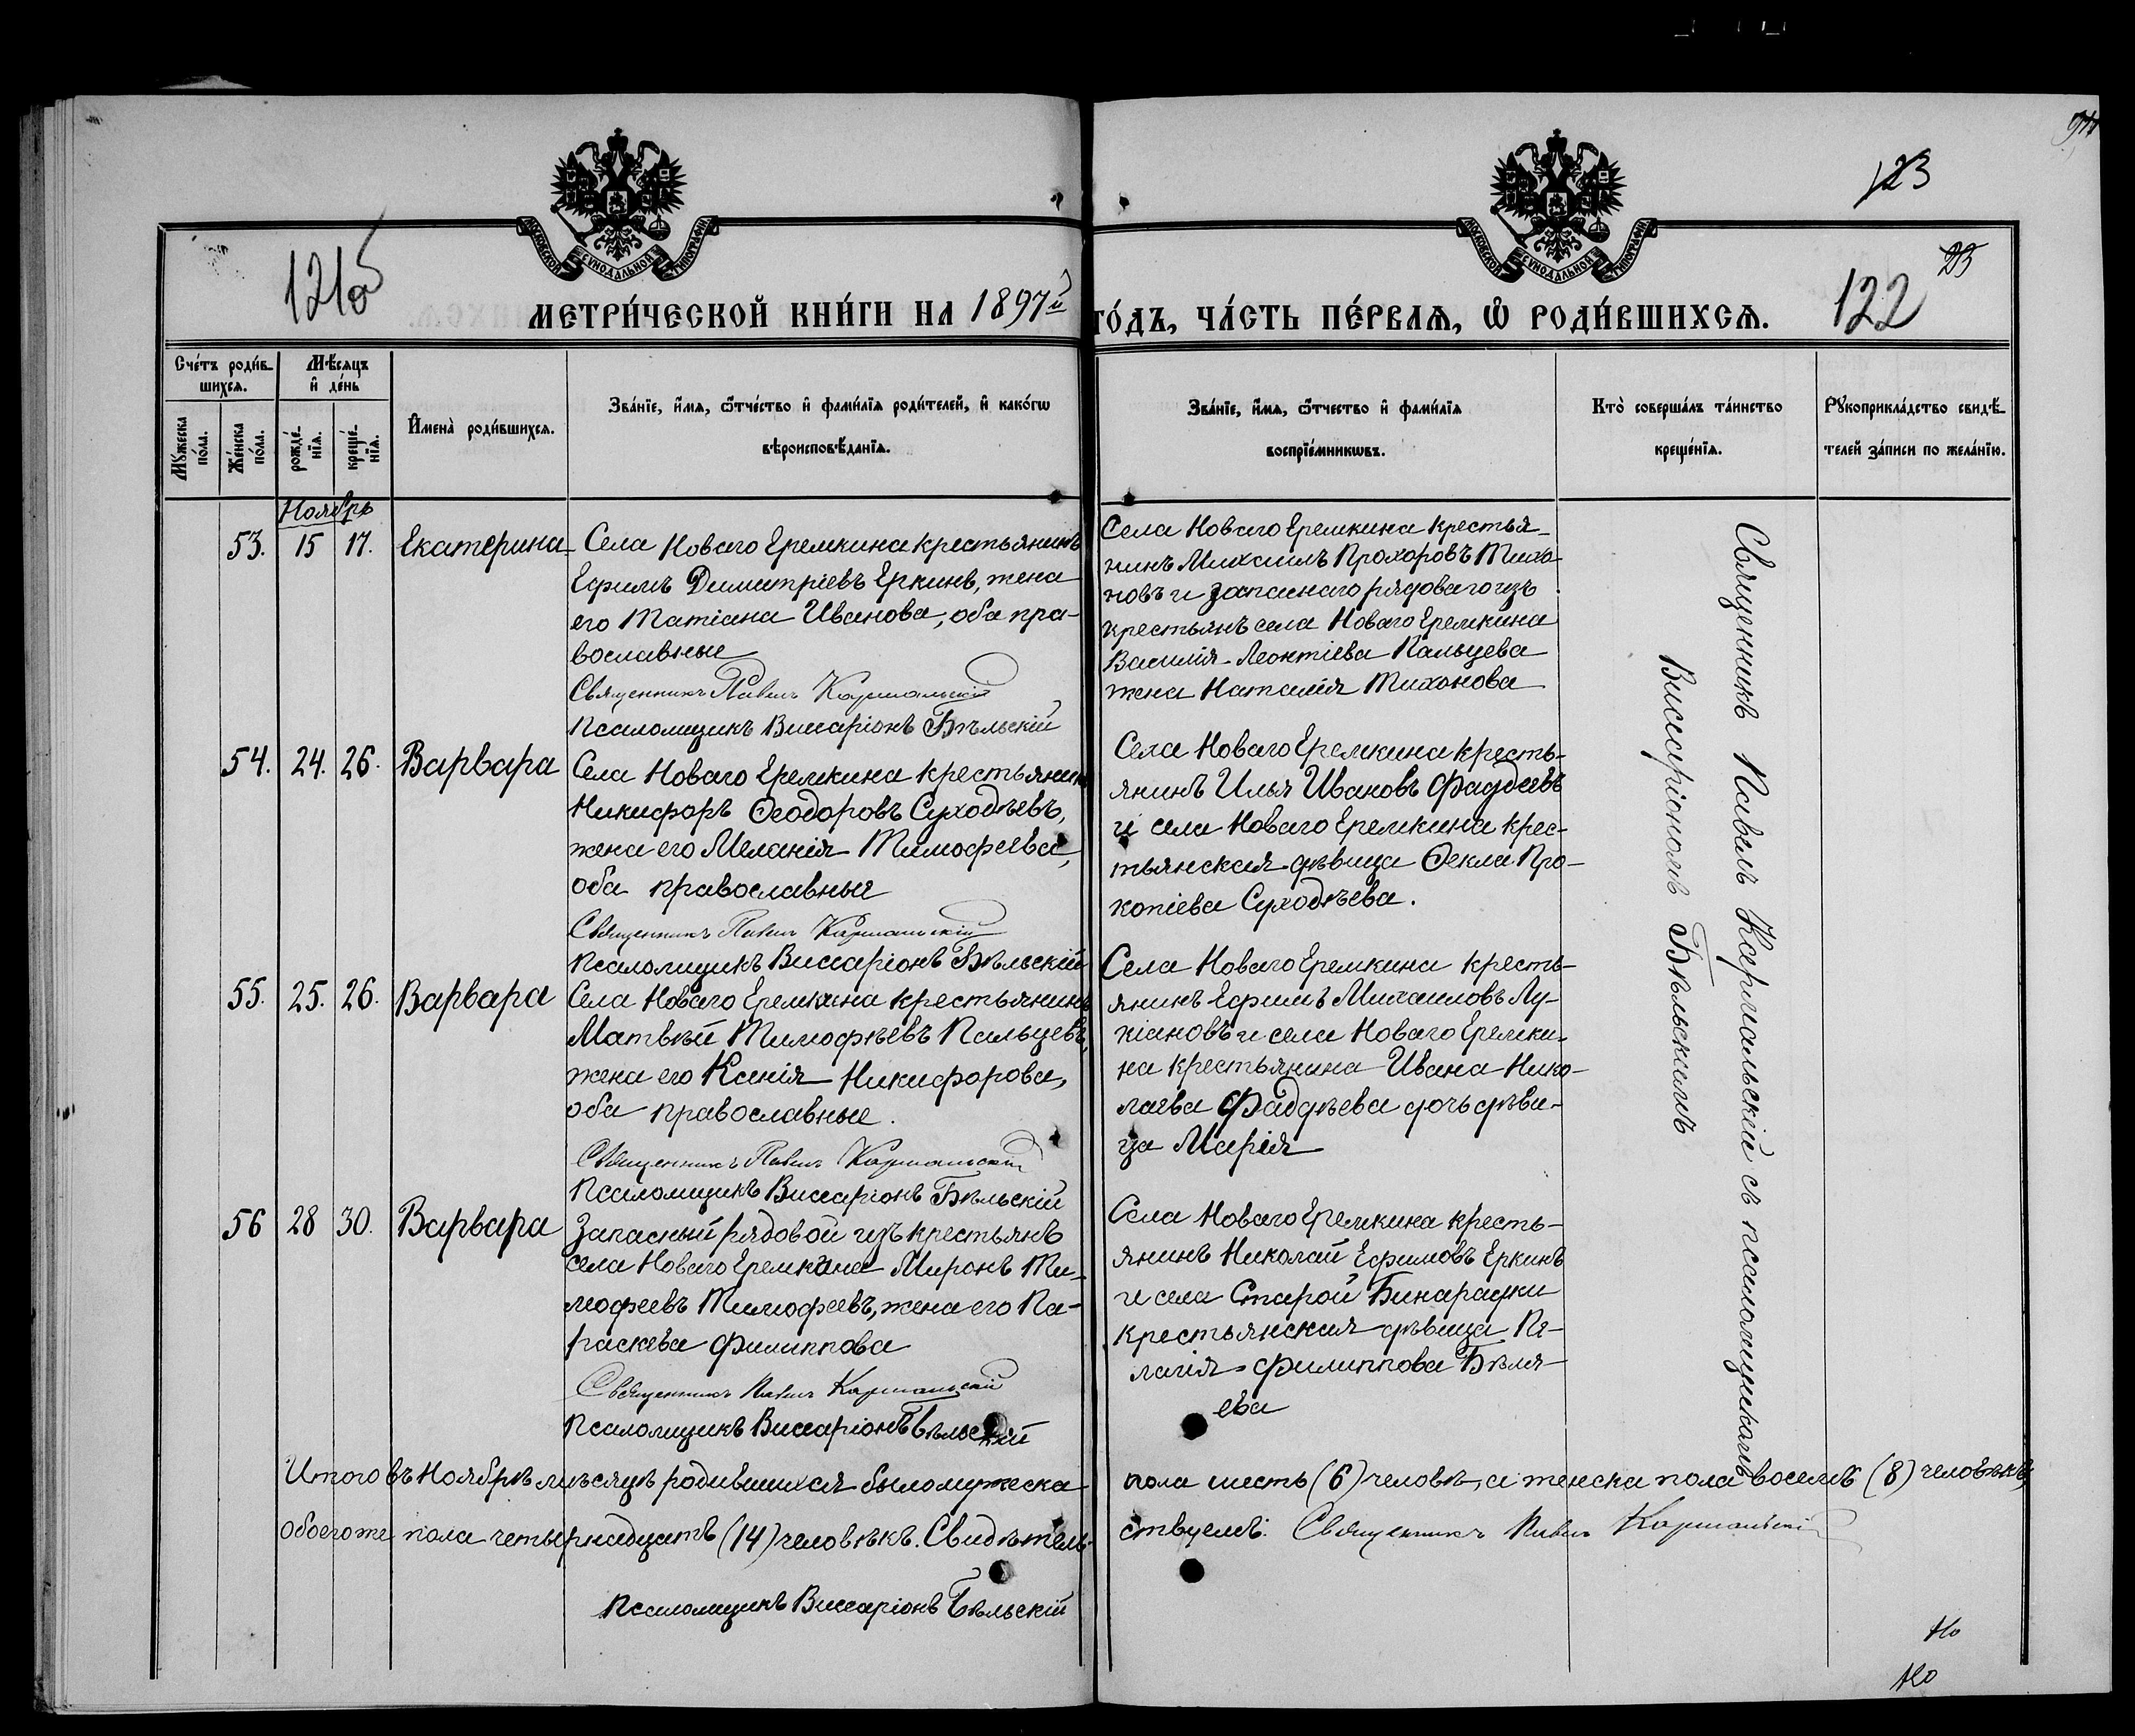 МОСКОВСКОЙ СѴНОДАЛЬНОЙ ТИПОГРАФІИ
МОСКОВСКОЙ СѴНОДАЛЬНОЙ ТИПОГРАФІИ
123
121об
122
МЕТРИ́ЧЕСКОЙ КНИ́ГИ НА 1897й
ГО́ДЪ, ЧА́СТЬ ПЕ́РВАѦ, Ѡ РОДИ́ВШИХСѦ.
Сче́тъ роди́в-
шихсѧ.
Мꙋ́жеска по́ла.
Же́нска по́ла.
Мѣ́сѧцъ
и҆ де́нь
рожде́-
нїѧ.
креще́-
нїѧ.
И҆мена̀ роди́вшихсѧ.
Зва́нїе, и҆́мѧ, ѻ҆́тчество и҆ фами́лїѧ роди́телей, и҆ како́гѡ
вѣроисповѣ́данїѧ.
Зва́нїе, и҆́мѧ, ѻ҆́тчество и҆ фами́лїѧ
воспрїе́мникѡвъ.
Кто̀ соверша́лъ та́инство
креще́нїѧ.
Рꙋкоприкла́дство свидѣ́-
телей за́писи по жела́нїю.
Ноябрь
53. 15 17. Екатерина
Села Новаго Еремкина крестьянинъ
Ефимъ Димитріевъ Еркинъ, жена
его Татіана Иванова, оба пра-
вославные
Священникъ Павелъ Кармальскій
Псаломщикъ Виссаріонъ Бѣльскій
Села Новаго Еремкина крестья-
нинъ Михаилъ Прохоровъ Тихо-
новъ и запаснаго рядоваго изъ
крестьянъ села Новаго Еремкина
Василія Леонтіева Пальцева
жена Наталія Тихонова
54. 24. 26. Варвара
Села Новаго Еремкина крестьянинъ
Никифоръ Ѳеодоровъ Суходѣевъ,
жена его Меланія Тимофеева,
оба православные
Священникъ Павелъ Кармальскій
Псаломщикъ Виссаріонъ Бѣльскій
Села Новаго Еремкина кресть-
янинъ Илья Ивановъ Фаддеевъ
и села Новаго Еремкина крес-
тьянская дѣвица Ѳекла Про-
копіева Суходѣева.
55. 25. 26. Варвара
Села Новаго Еремкина крестьянинъ
Матвѣй Тимофѣевъ Пальцевъ,
жена его Ксенія Никифорова,
оба православные.
Священникъ Павелъ Кармальскій
Псаломщикъ Виссаріонъ Бѣльскій
Села Новаго Еремкина кресть-
янинъ Ефимъ Михаиловъ Лу-
кіановъ и села Новаго Еремки-
на крестьянина Ивана Нико-
лаева Фаддѣева дочь дѣви-
ца Марія
56 28 30. Варвара
Запасный рядовой изъ крестьянъ
села Новаго Еремкина Миронъ Ти-
мофеевъ Тимофеевъ, жена его Па-
раскева Филиппова
Священникъ Павелъ Кармальскій
Псаломщикъ Виссаріонъ Бѣльскій
Села Новаго Еремкина кресть-
янинъ Николай Ефимовъ Еркинъ
и села Старой Бинарадки
крестьянская дѣвица Пе-
лагія Филиппова Бѣля-
ева
Священникъ Павелъ Кармальскій съ псаломщикомъ
Виссаріономъ Бѣльскимъ
Итого въ Ноябрѣ мѣсяцѣ родившихся было мужеска пола шесть (6) человѣ, а женска пола восемь (8) человѣкъ,
обоего же пола четырнадцать (14) человѣкъ. Свидѣтель-ствуемъ: Священникъ Павелъ Кармальскій
Псаломщикъ Виссаріонъ Бѣльскій